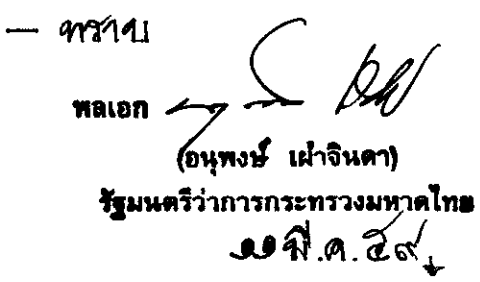 — ทราบ
พลเอก
(อนุพงษ์ เผ่าจินดา)
รัฐมนตรีว่าการกระทรวงมหาดไทย
๑๑ มี.ค. ๕๙